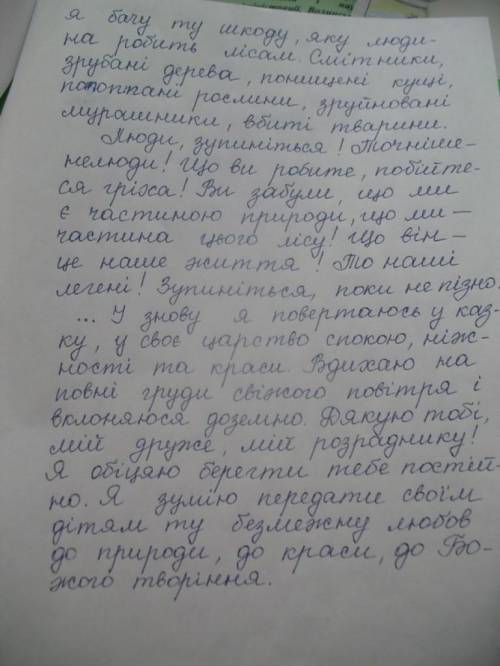 я бачу ту шкоду, яку люди-
на робить лісам. Смітники,
зрубані дерева, понищені кущі,
потоптані рослини, зруйновані
мурашники, вбиті тварини.
Люди, зупиніться! Точніше-
нелюди! Що ви робите, побійте-
ся гріха! Ви забули, що ми
є частиною природи, що ми —
частина цього лісу! Що він —
це наше життя! То наші
легені! Зупиніться, поки не пізно.
... І знову я повертаюсь у каз-
ку, у своє царство спокою, ніж-
ності та краси. Вдихаю на
повні груди свіжого повітря і
вклоняюся доземно. Дякую тобі,
мій друже, мій розраднику!
Я обіцяю берегти тебе постій-
но. Я зумію передати своїм
дітям ту безмежну любов
до природи, до краси, до Бо-
жого творіння.